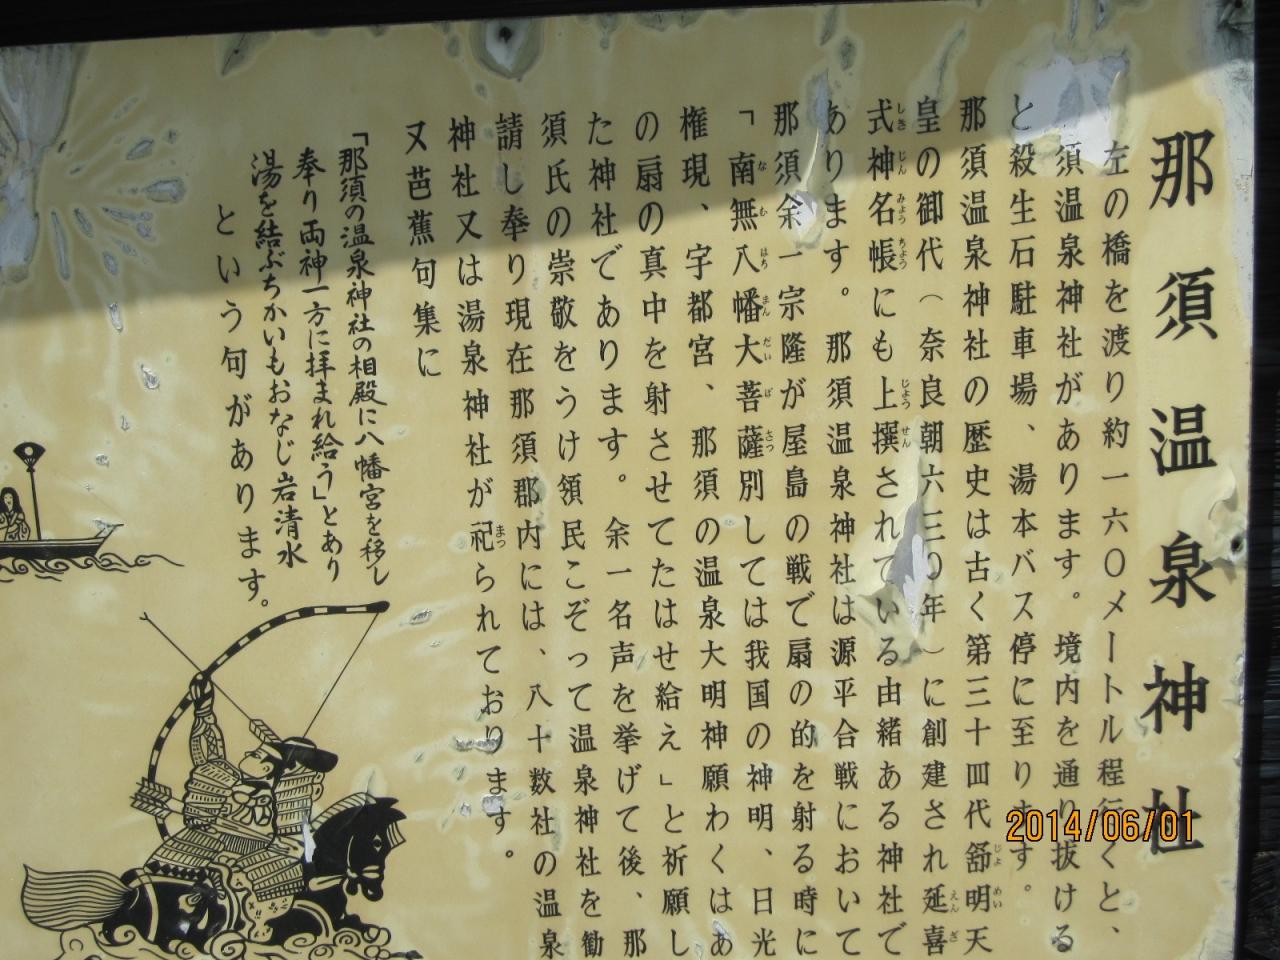 那須温泉神社
左の橋を渡り約一六〇メートル程行くと、
須温泉神社があります。境内を通り抜ける
と殺生石駐車場、湯本バス停に至ります。
那須温泉神社の歴史は古く第三十四代舒明天
皇の御代（奈良朝六三〇年）に創建され延喜
式神名帳にも上撰されている由緒ある神社で
あります。那須温泉神社は源平合戦において
那須余一宗隆が屋島の戦で扇の的を射る時に
「南無八幡大菩薩別しては我国の神明、日光
権現、宇都宮、那須の温泉大明神願わくはあ
の扇の真中を射させてたはせ給え」と祈願し
た神社であります。余一名声を挙げて後、那
須氏の崇敬をうけ領民こぞって温泉神社を勧
請し奉り現在那須郡内には、八十数社の温泉
神社又は湯泉神社が祀られております。
又芭蕉句集に
「那須の温泉神社の相殿に八幡宮を移し
奉り両神一方に拝まれ給う」とあり
湯を結ぶちかいもおなじ岩清水
という句があります。
しきじんみょうちょう
じょうせん
じょめい
えんぎ
なむはちまんだいぼさつ
まつ
2014/06/01